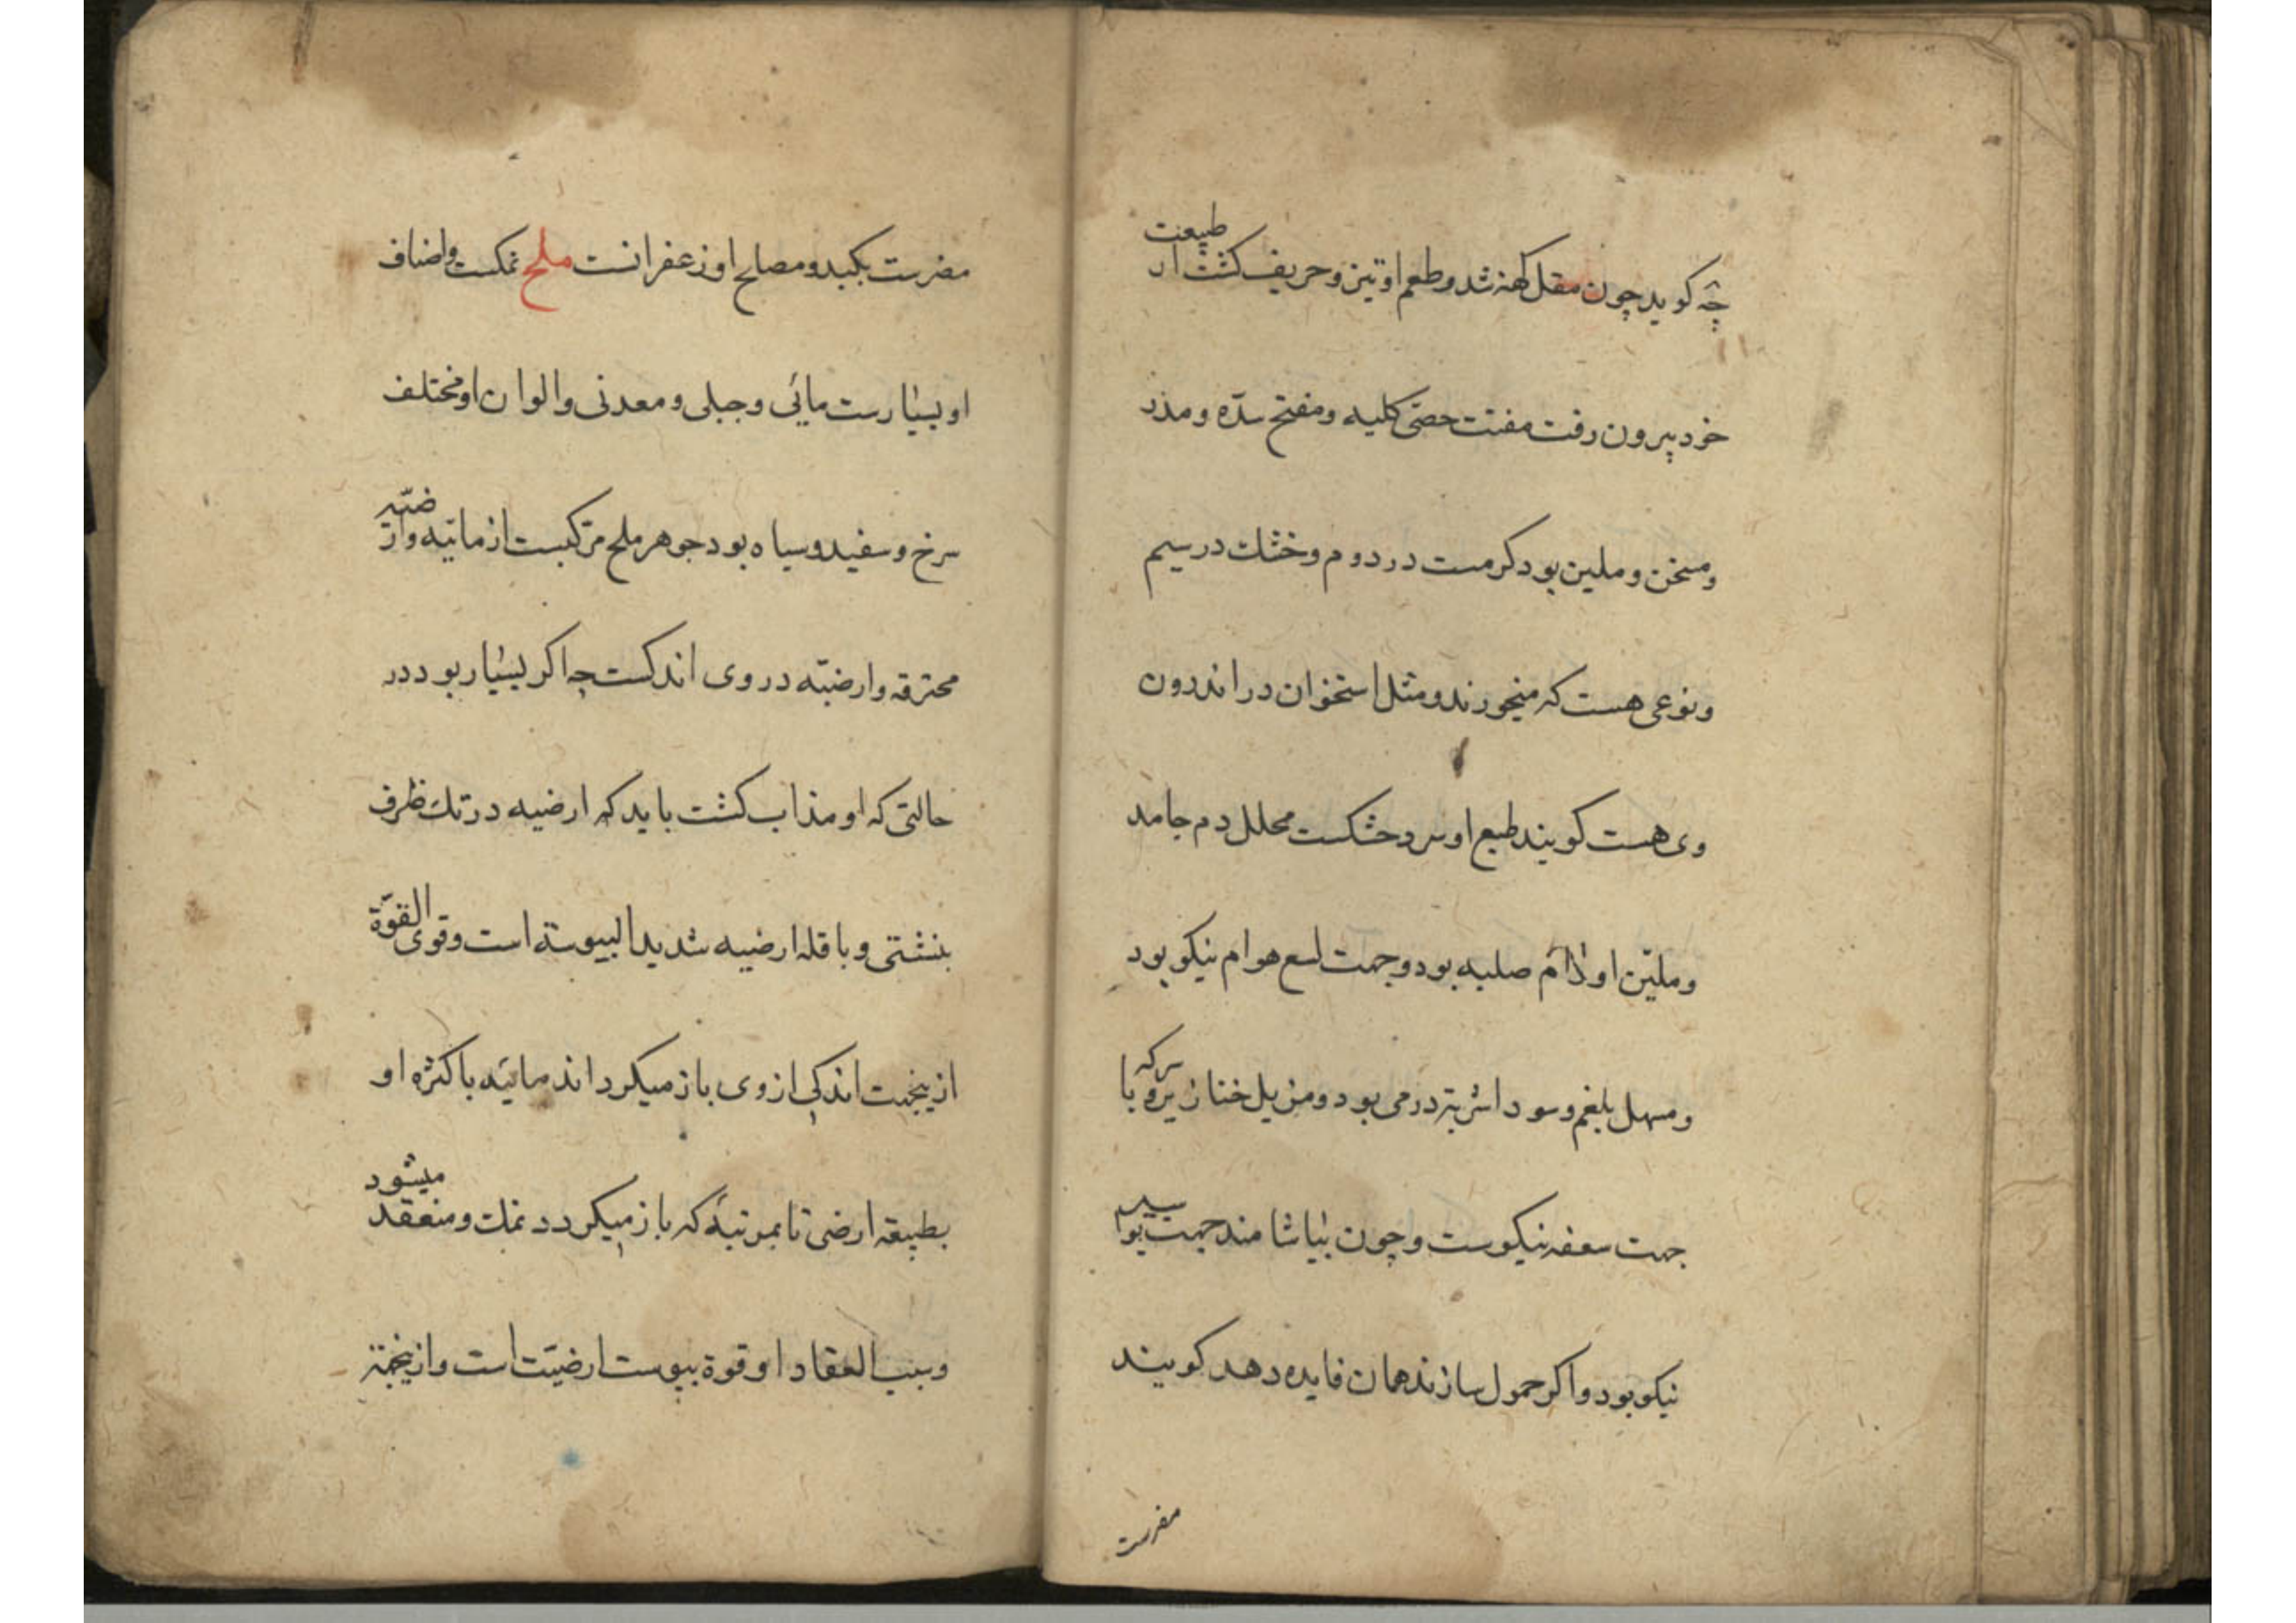 چه کوید چون مقل کهنه شد و طعم او تیز و حریف کشت از طبیعت
خرد بیرون رفت مفتت حصی کلیه و مفتح سدّه و مدر
و مسخن و ملین بود کرمست در دوم و خشک در سیم
و نوعی هست که میخورند و مثل استخوان در اندرون
وی هست کویند طبع او سرد خشکست محلل دم جامد
و ملیّن اورام صلبه بود و جهت لسع هوام نیکو بود
و مسهل بلغم و سودا شربتی درمی بود و مزیل خنازیر و با سرکه
جهت سعفه نیکوست و چون بیاشامند جهت بواسیر
نیکو بود و اکر حمول سازند همان فایده دهد کویند
مضرست
مضرست بکبد و مصلح او زعفرانست ملح نمکست و اصناف
او بسیارست مائی و جبلی و معدنی و الوان او مختلف
سرخ و سفید و سیاه بود جوهر ملح مرکبست از مائیه و ارضیّه
محترقه و ارضیّه در وی اندکست چه اکر بسیار بود در
حالتی که او مذاب کشت باید که ارضیه در تک ظرف
بنشستی و با قله ارضیه شدید الیبوسة است و قوی القوّة
ازینجهت اندکی از وی باز میکرداند مائیه با کثره او
بطبیعة ارضی تا بمرتبهٔ که باز میکردد نمک و منعقد میشود
و سبب انعقاد او قوة یبوست ارضیّت است و ازینجهة